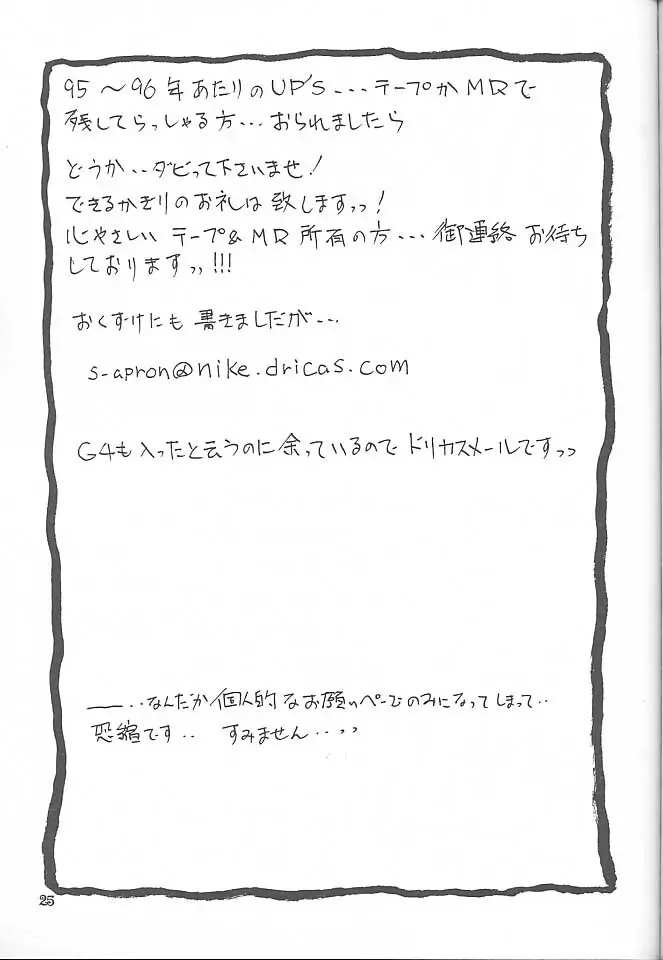 95～96年あたりのUP'S...テープかMDで
残してらっしゃる方...おられましたら
どうか..ダビって下さいませ!
できるかぎりのお礼は致しますっっ!
心やさしい テープ&MD所有の方...御連絡お待ち
しておりますっっ!!!
おくずけにも書きましたが...
s-apron@nike.dricas.com
G4も入ったと云うのに余っているので ドリカスメールですっっ
――..なんだか個人的なお願いページのみになってしまって..
恐縮です.. すみません..っっ
25